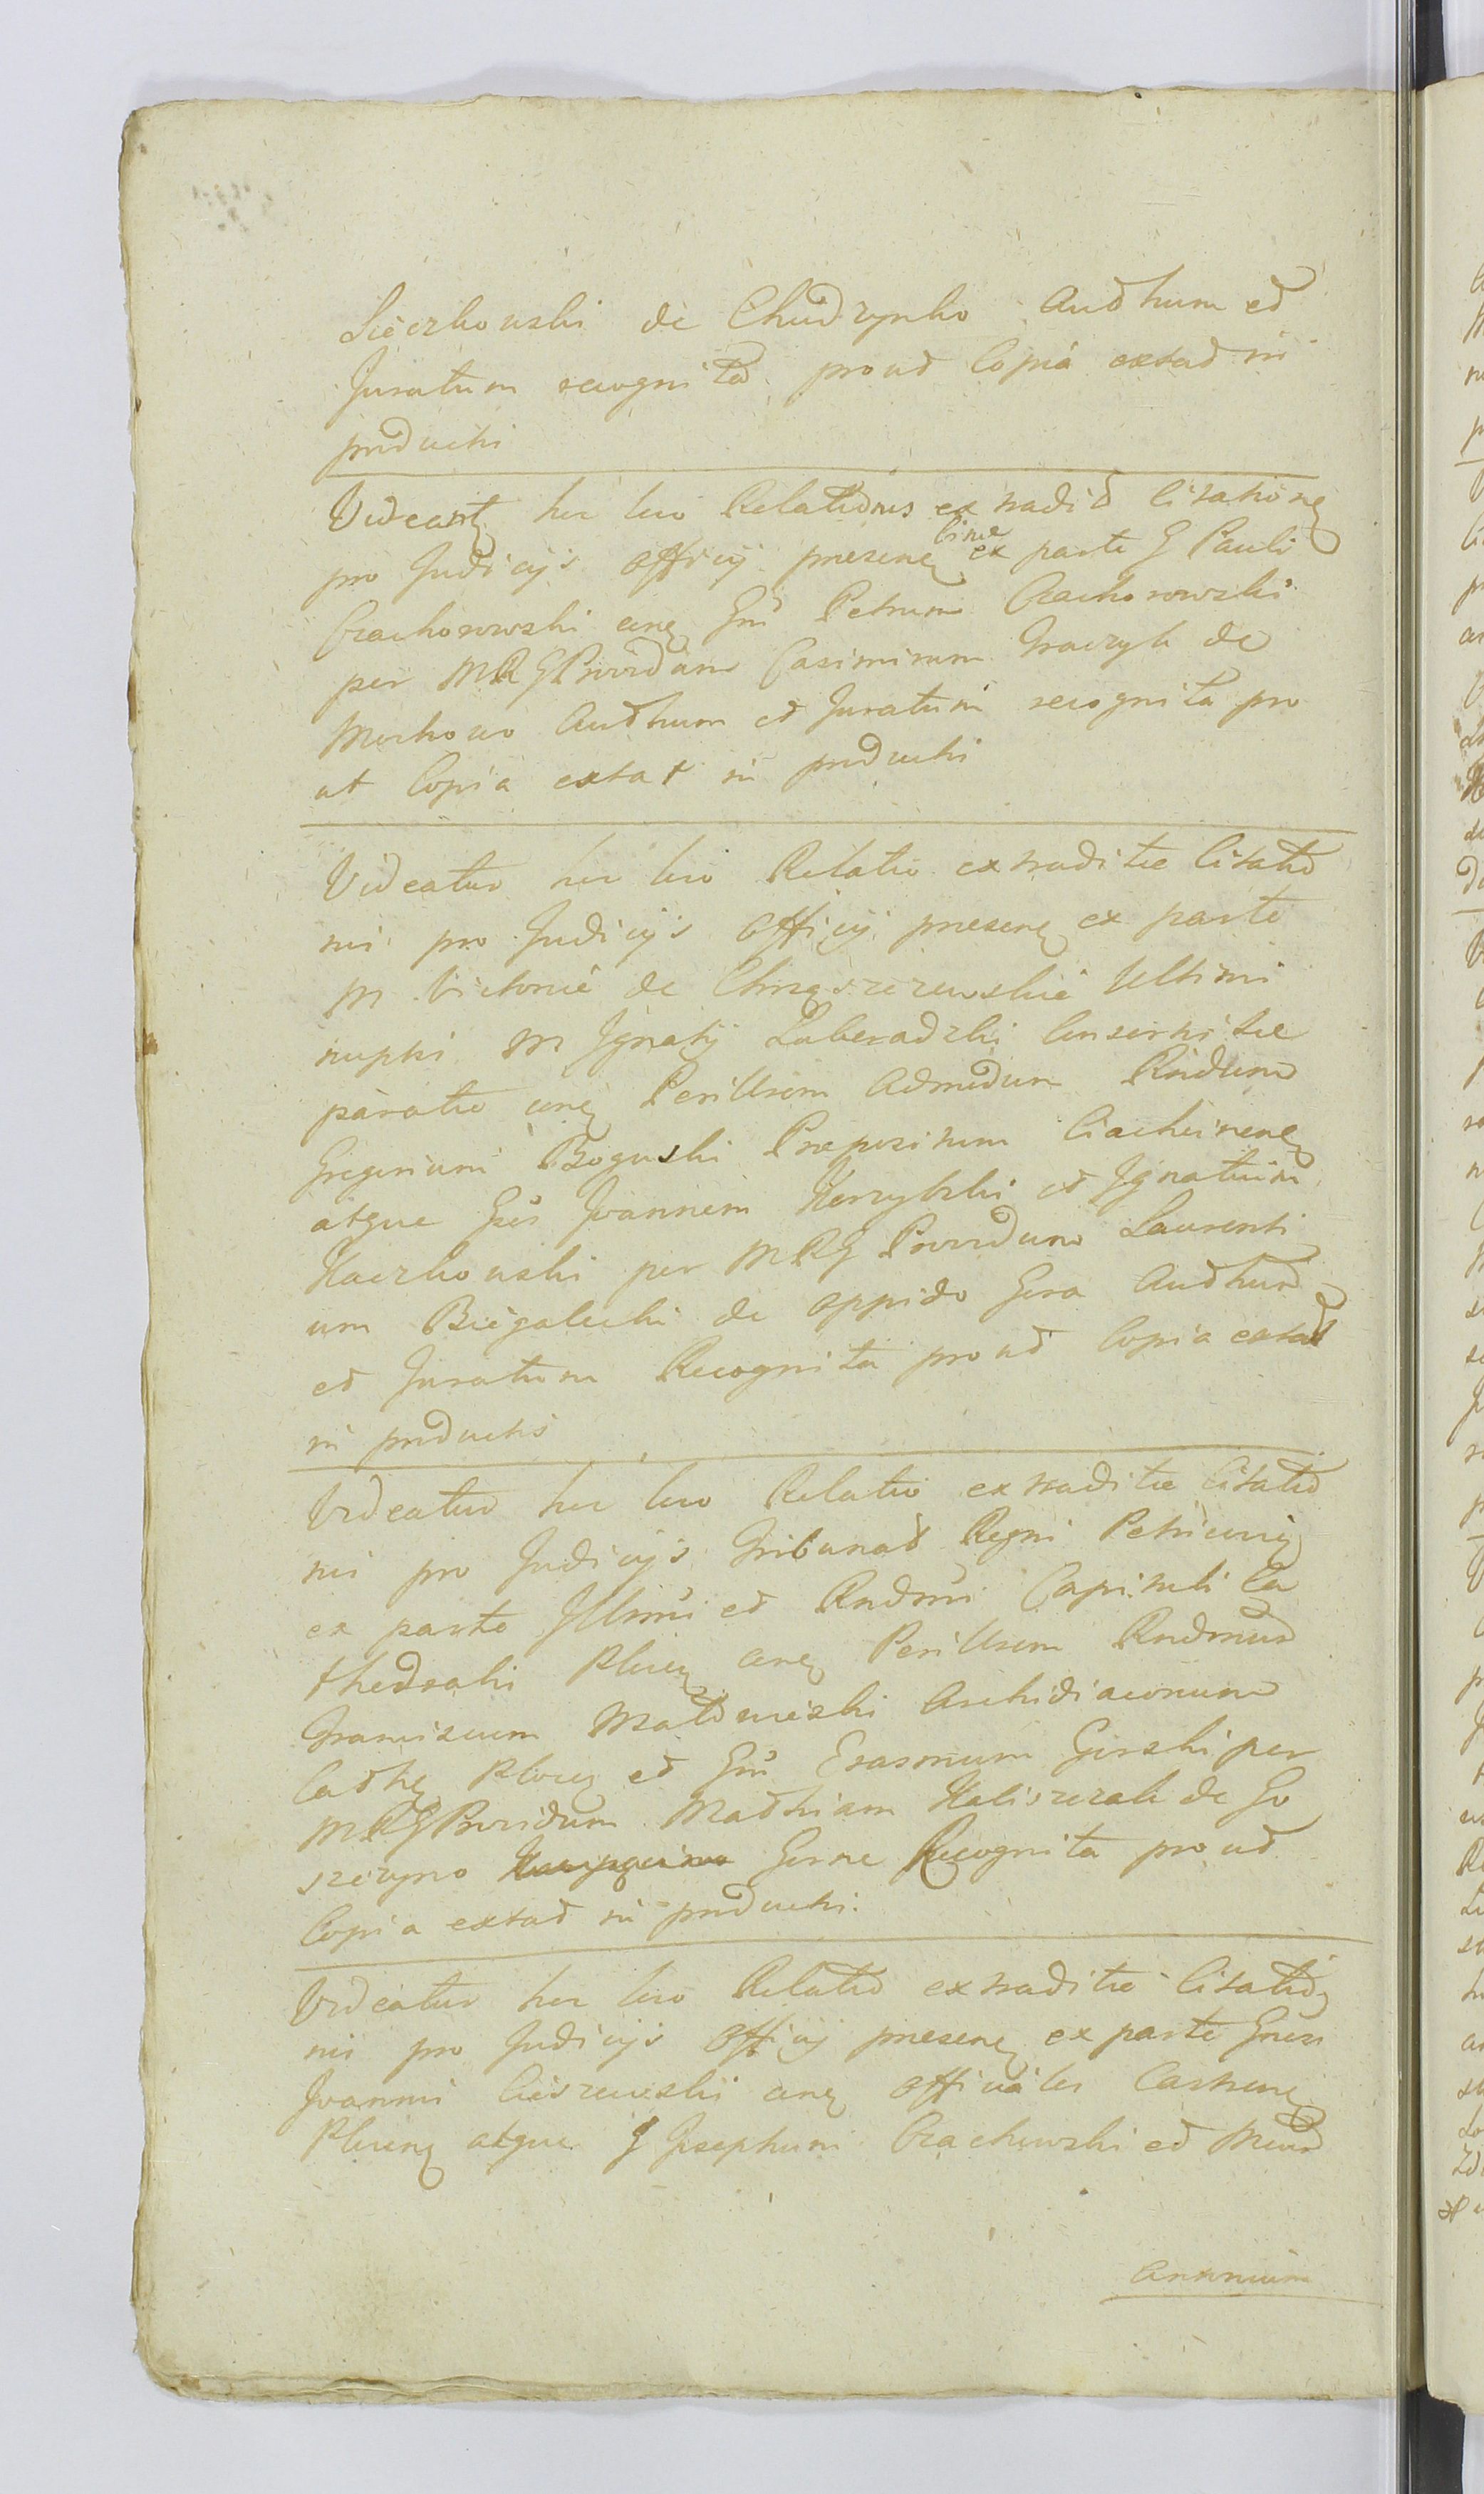 Sieczkowski de Chudzynko Authum et
Juratum recognita prout Copia extat in
productis
Videat hic loco Relationis extradit Citationę
pro Judicijs Officij presenę
ex parte G Pauli
Crachorowski conę Gm Petrum Crachorowski
per MRG Providum Casimirum Graczyk de
Mochowo Authum et Juratum recognita pro
ut Copia extat in productis
Videatur hic loco Relatio extraditæ Citatio
nis pro Judicijs Officij presenę ex parte
M Victoriæ de Chrząszczewskie Ultimi
nupti M Ignatij Luberadzki Consortis ac
paratæ conę Perillsem Admodum Rndum
Gregorium Boguski Præpositum Ciachcinenę
atque Gsos Joannem Kossobzki et Ignatium
Kaczkowski per MRG Providum Laurenti
um Biegalecki de oppido Gora Authum
et Juratum Recognita prout Copia extat
in productis
Videatur hic loco Relatio extraditæ Citatio
nis pro Judicijs Tribunat Regni Petricovię
ex parte Illmi et Rndmi Capituli Ca
thedralis Plocę conę Perillsem Rndmum
Franciscum Archidiaconum
Cathę Plocę et Gm Erasmum Gorski per
MRG Providum Mathiam Kaliszczak de Go
szczyno Gorne Recognita prout
Copia extat in productis.
Videatur hic loco Relatio extraditæ Citatio
nis pro Judicijs Officij presenę ex parte Gnosi
Joannis Cieszewski conę Officiales Castrenę
Plocenę atque G Josephum Crachewski et